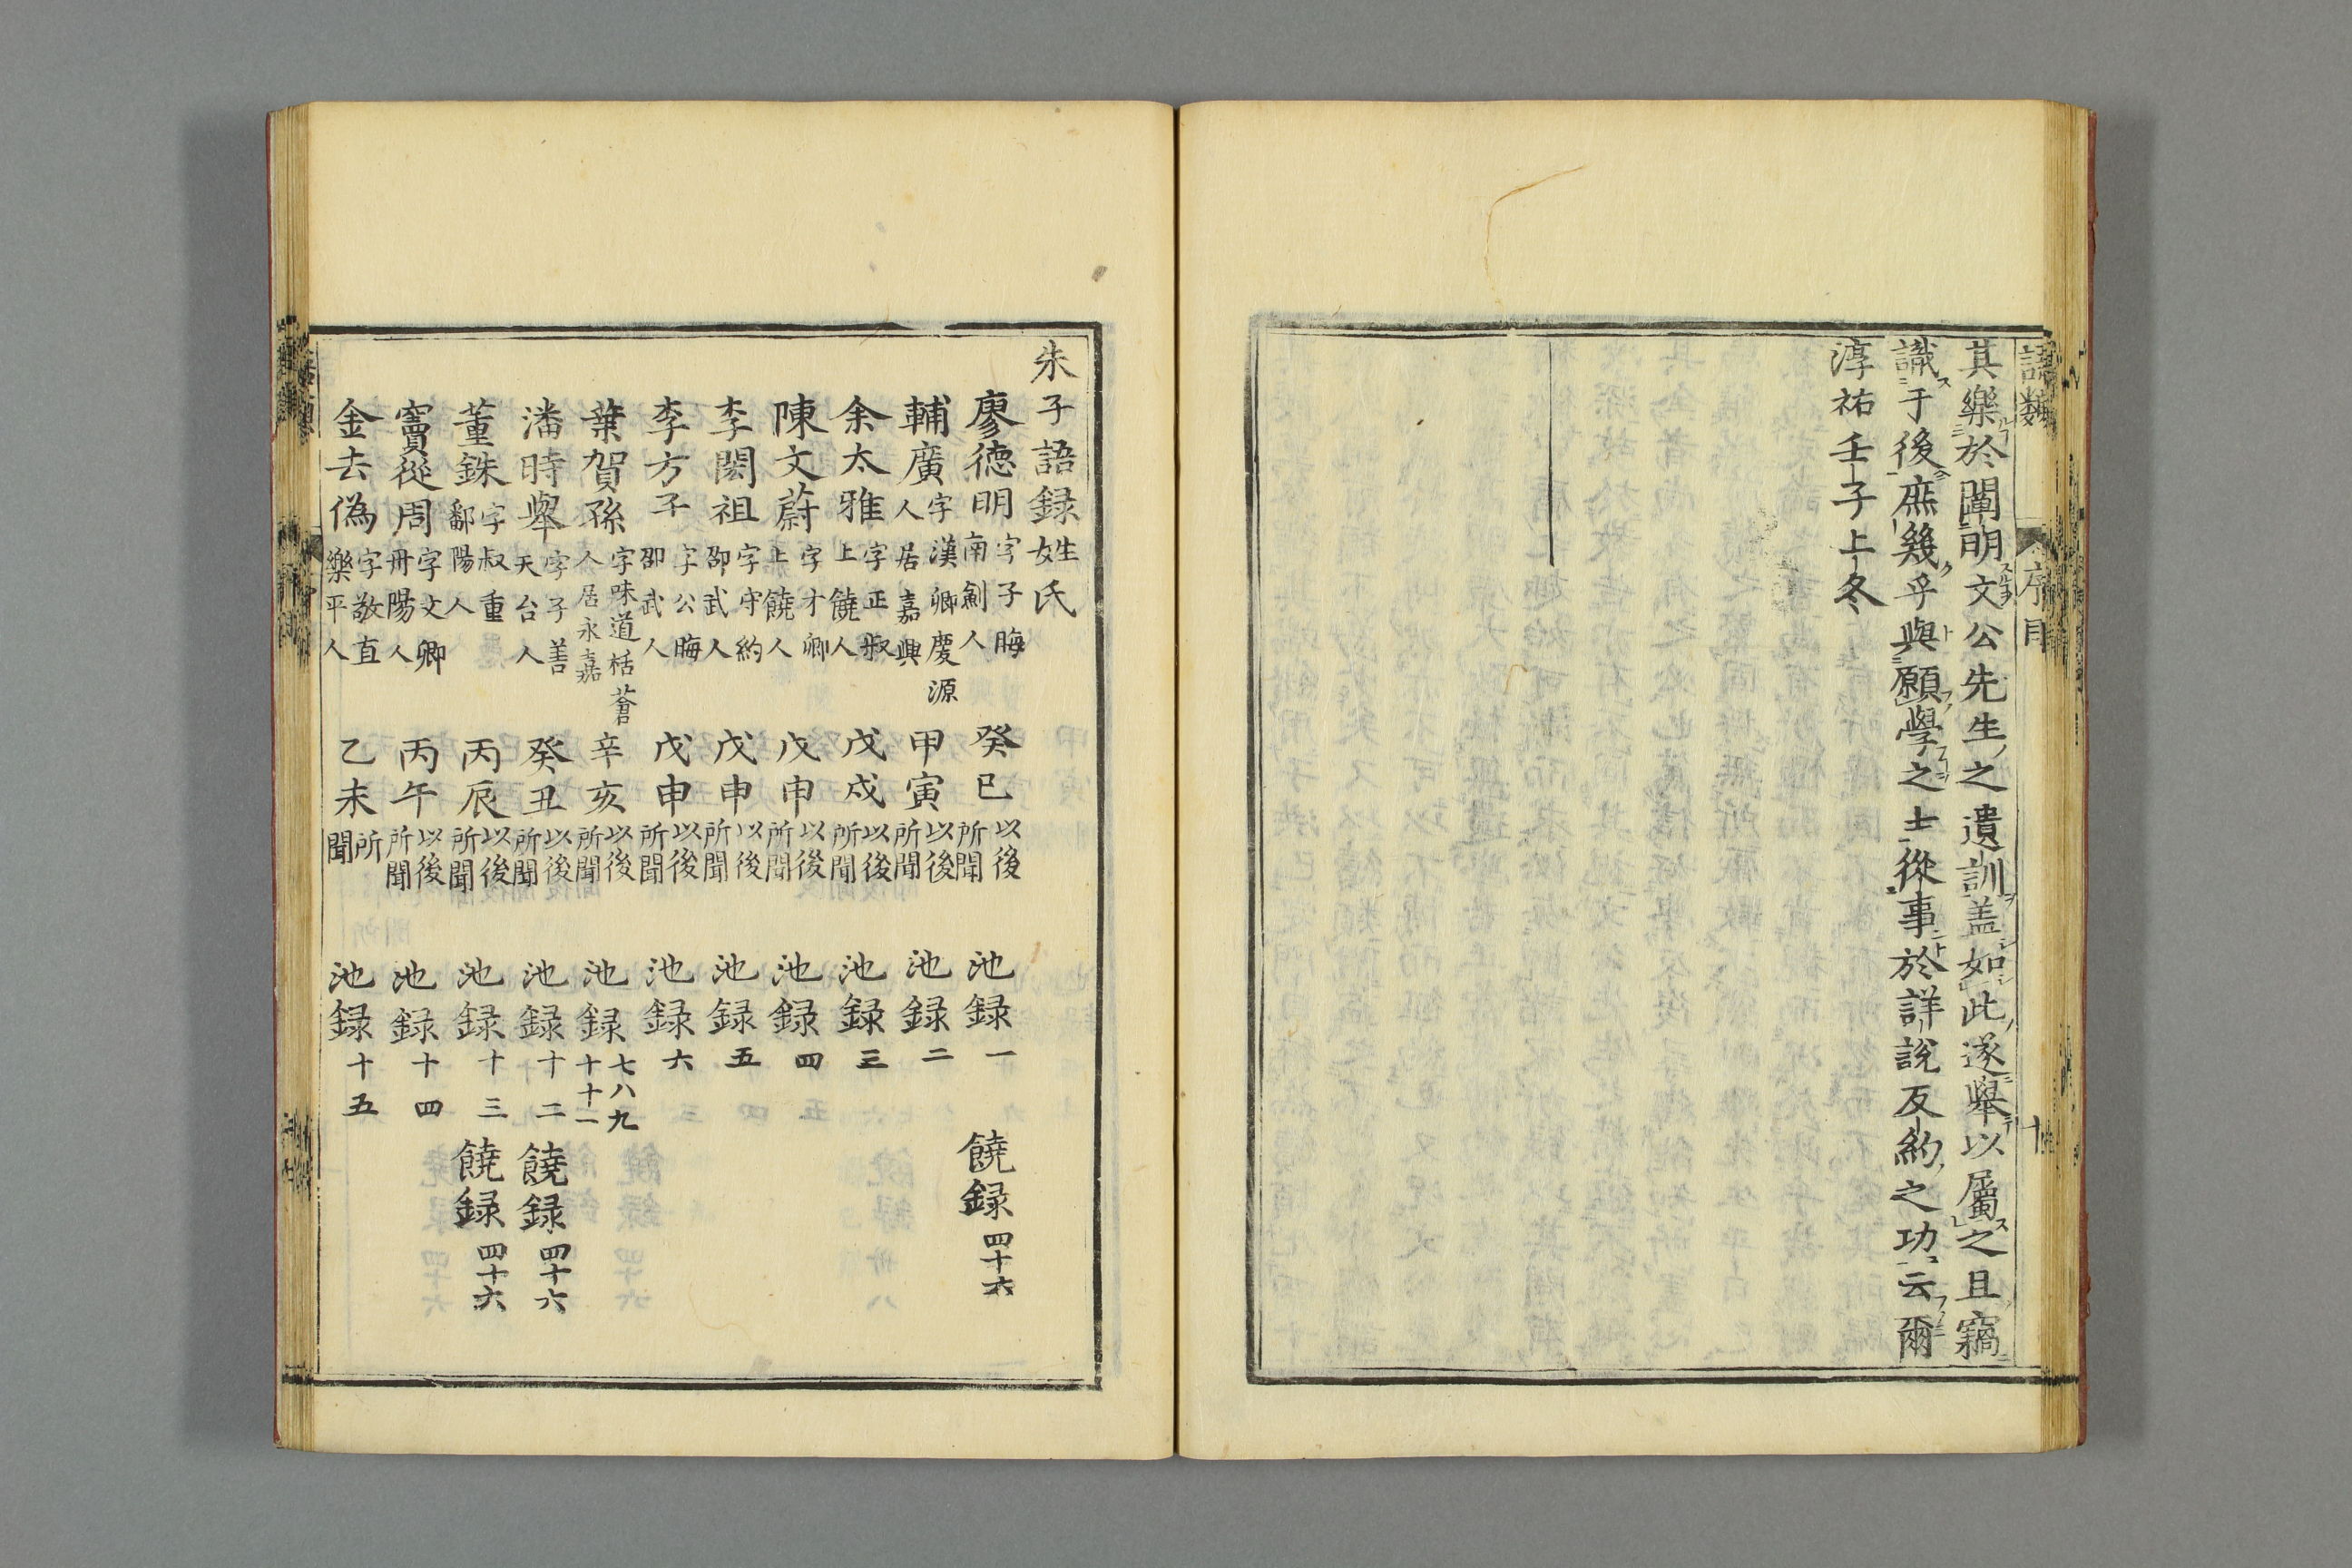 語類
序目
十
其樂於闡明文公先生之遺訓盖如此遂舉以屬之且竊
識于後庶幾乎與願學之士從事於詳說反約之功云爾
淳祐壬子上冬
朱子語録姓氏
廖德明字子晦南劍人 癸巳以後所聞 池録一 饒録四十六
輔廣字漢卿慶源人居嘉興 甲寅以後所聞 池録二
余大雅字正叔上饒人 戊戌以後所聞 池録三
陳文蔚字才卿上饒人 戊申以後所聞 池録四
李閎祖字守約邵武人 戊申以後所聞 池録五
李方子字公晦邵武人 戊申以後所聞 池録六
葉賀孫字味道栝蒼人居永嘉 辛亥以後所聞 池録七八九十十一
潘時舉字子善天台人 癸丑以後所聞 池録十二 饒録四十六
董銖字叔重鄱陽人 丙辰以後所聞 池録十三 饒録四十六
竇從周字文卿丹陽人 丙午以後所聞 池録十四
金去偽字敬直樂平人 乙未所聞 池録十五